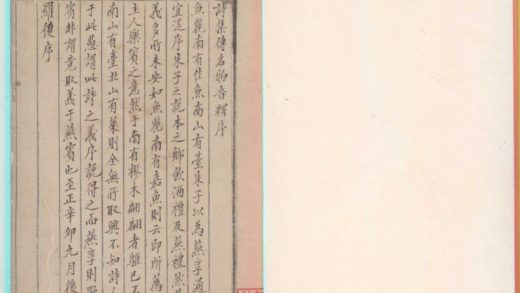 詩集傳名物音釋序
魚麗南有佳魚南山有臺朱子以為燕享通
宜泛序朱子之說本之鄉飲酒禮及燕禮然
義多所未安如魚麗南有嘉魚則云即所薦
主人樂賓之意然于南有樛木翩翩者鵻已不
南山有臺北山有菜則全無所取興不知詩
于此愚謂此詩之義序說得之而燕享則
賓非謂竟取義于燕賓也至正辛卯九月後
羅復序